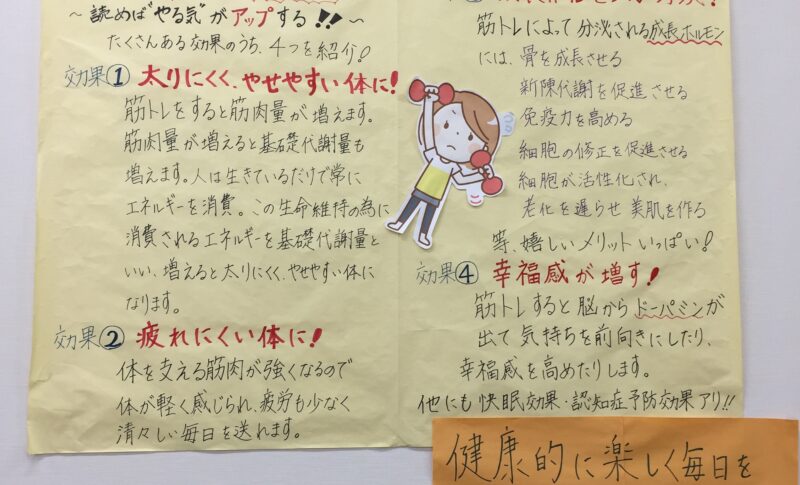 ~読めば"やる気"がアップする!!~
たくさんある効果のうち、4つを紹介!
効果① 太りにくく、やせやすい体に!
筋トレをすると筋肉量が増えます。
筋肉量が増えると基礎代謝量も
増えます。人は生きているだけで常に
エネルギーを消費。この生命維持の為に
消費されるエネルギーを基礎代謝量と
いい、増えると太りにくく、やせやすい体に
なります。
効果② 疲れにくい体に!
体を支える筋肉が強くなるので
体が軽く感じられ、疲労も少なく
清々しい毎日を送れます。
筋トレによって分泌される成長ホルモン
には、骨を成長させる
新陳代謝を促進させる
免疫力を高める
細胞の修正を促進させる
細胞が活性化され、
老化を遅らせ美肌を作る
等、嬉しいメリットいっぱい!
効果④ 幸福感が増す!
筋トレすると脳からドーパミンが
出て気持ちを前向きにしたり、
幸福感を高めたりします。
他にも快眠効果・認知症予防効果アリ!!
健康的に楽しく毎日を